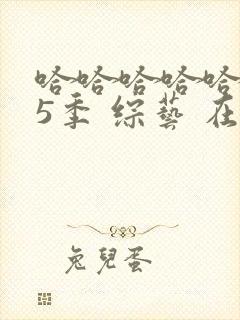 哈哈哈哈哈
5季 综藝 在
兔兒蛋